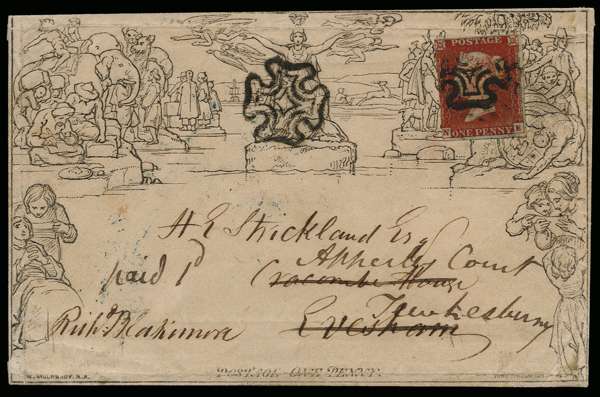 POSTAGE
ONE PENNY
H E Strickland Esq
Apperly Court
paid 1d
Cracombe House
Tewkesbury
Evesham
Richd Blakemore
POSTAGE ONE PENNY.
W. MULREADY, R.A.